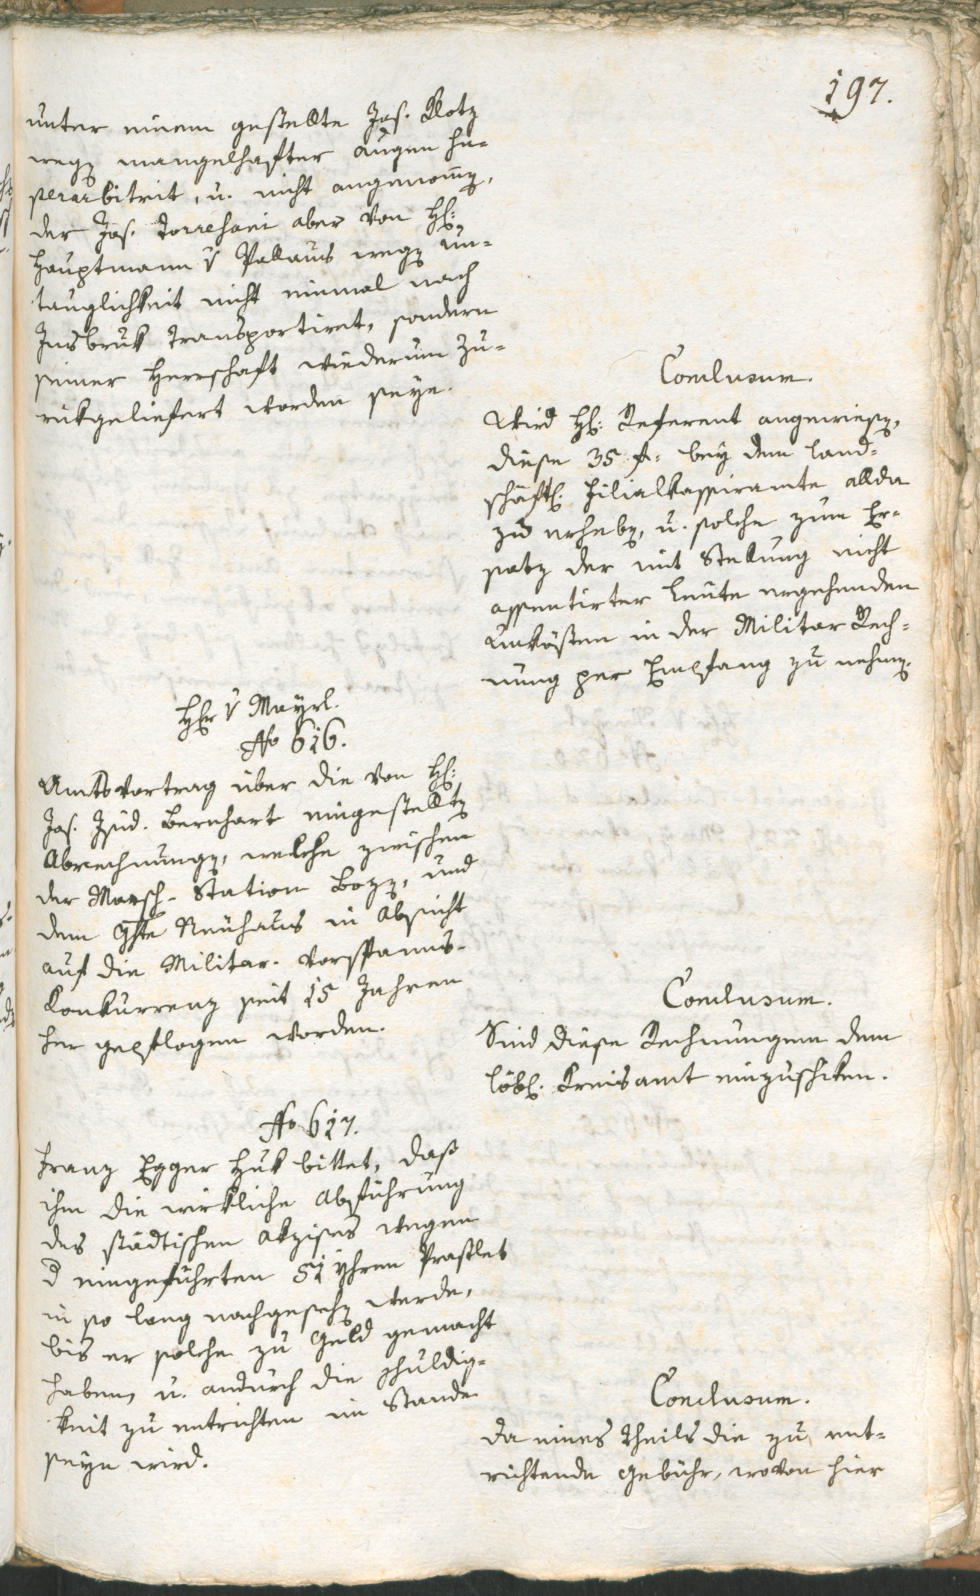 197.
unter einem gestellte Jos. Klotz
weg mangelhafter Augen su-
perarbitrirt, u. nicht angenomen,
der Jos. Torresani aber von H:
Hauptmann v Pallaus weg un-
tauglichkeit nicht einmal nach
Insbruk transportiret, sondern
seiner Herrschaft wiederum zu-
rükgeliefert worden seye.
Conclusum.
Wird H: Referent angewiesen,
diese 35 f: bey dem land-
schäftl. Filialkassieramte allda
zu erheben, u. solche zum Er-
satz der mit Stellung nicht
assentirter Leute ergehenden
Unkösten in der Militar Rech-
nung per Empfang zu nehmen.
Hr v Mayrl.
No 616.
Amtsvortrag über die von H:
Jos. Isid. Bernhart eingestellte
Abrechnungen, welche zwischen
der Marsch-Station Bozen, und
dem Ghte Neuhaus in Absicht
auf die Militar-Vorspanns-
Konkurrenz seit 15 Jahren
her gepflogen worden.
Conclusum.
Sind diese Rechnungen dem
löbl. Kreisamt einzuschiken.
No 617.
Franz Egger Huk bittet, daß
ihm die wirkliche Abführung
des städtischen Akzises wegen
d eingeführten 51 Yhren Praßlet
in so lang nachgesehen werde,
bis er solche zu Geld gemacht
haben, u. andurch die schuldig-
keit zu entrichten im Stande
seyn wird.
Conclusum.
Da eines Theils die zu ent-
richtende Gebühr, wovon hier